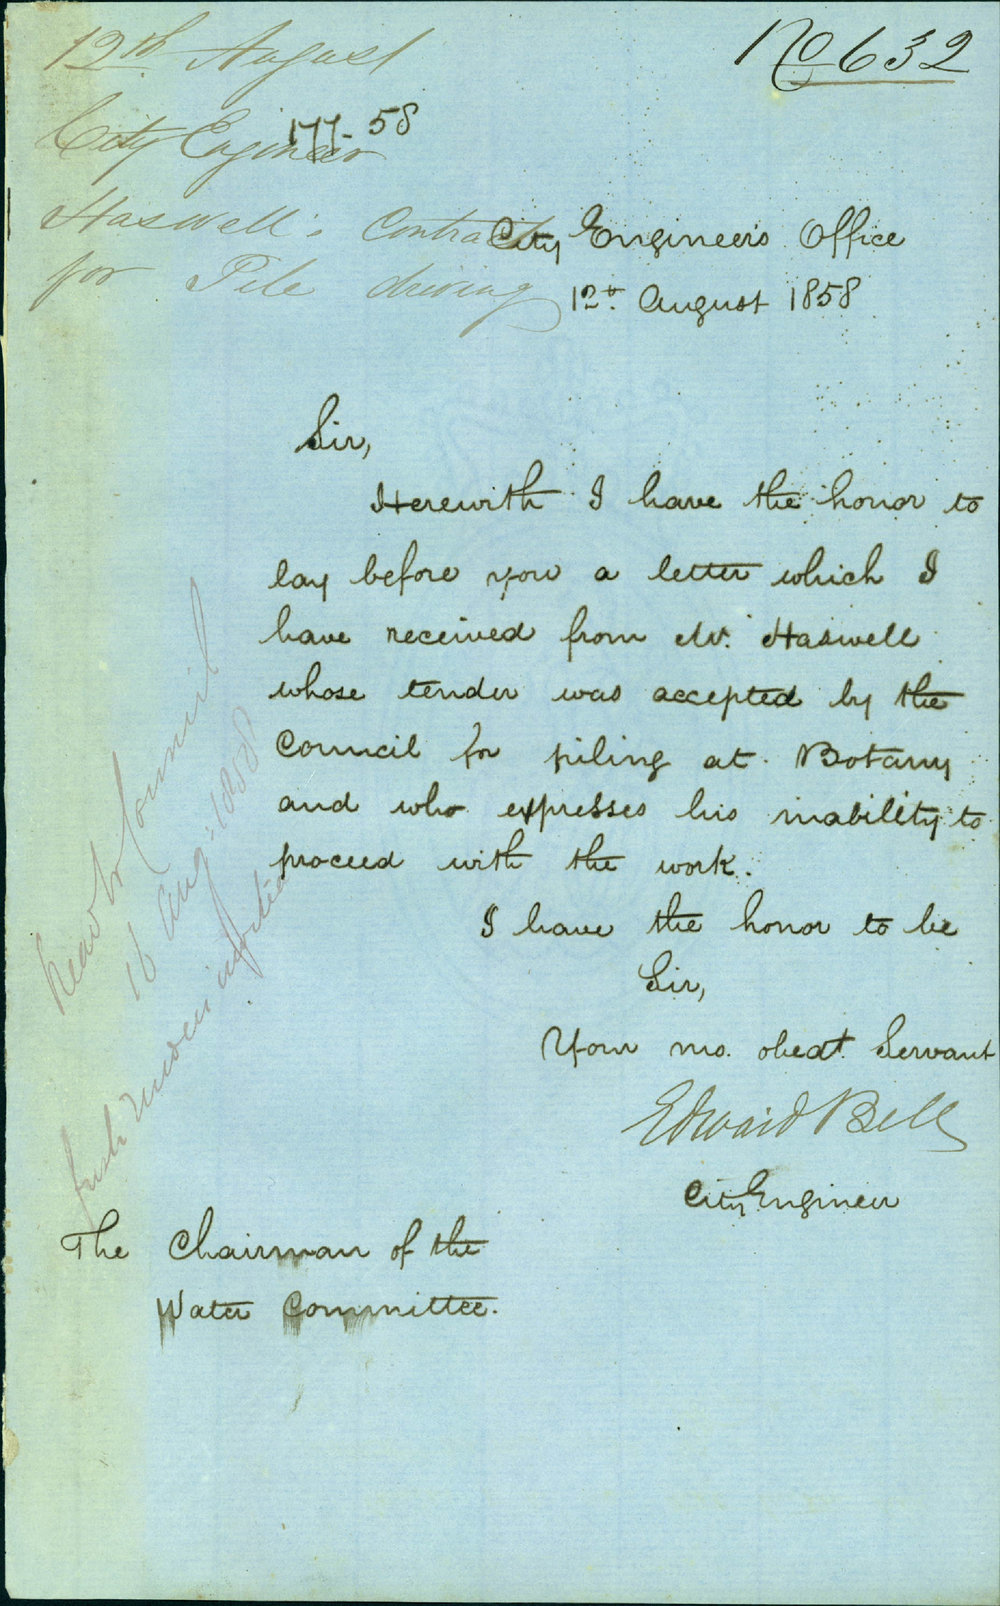 12th August
No 632
177-58
City Engineer
Haswell's Contract
for Pile driving
City Engineer's Office
12th August 1858
Sir,
Herewith I have the honor to
lay before you a letter which I
have received from Mr. Haswell
whose tender was accepted by the
Council for piling at Botany
and who expresses his inability to
proceed with the work.
I have the honor to be
Sir,
Your mo. obedt. Servant
Edward Bell
City Engineer
The Chairman of the
Water Committee.
Council
16 Aug: 1858